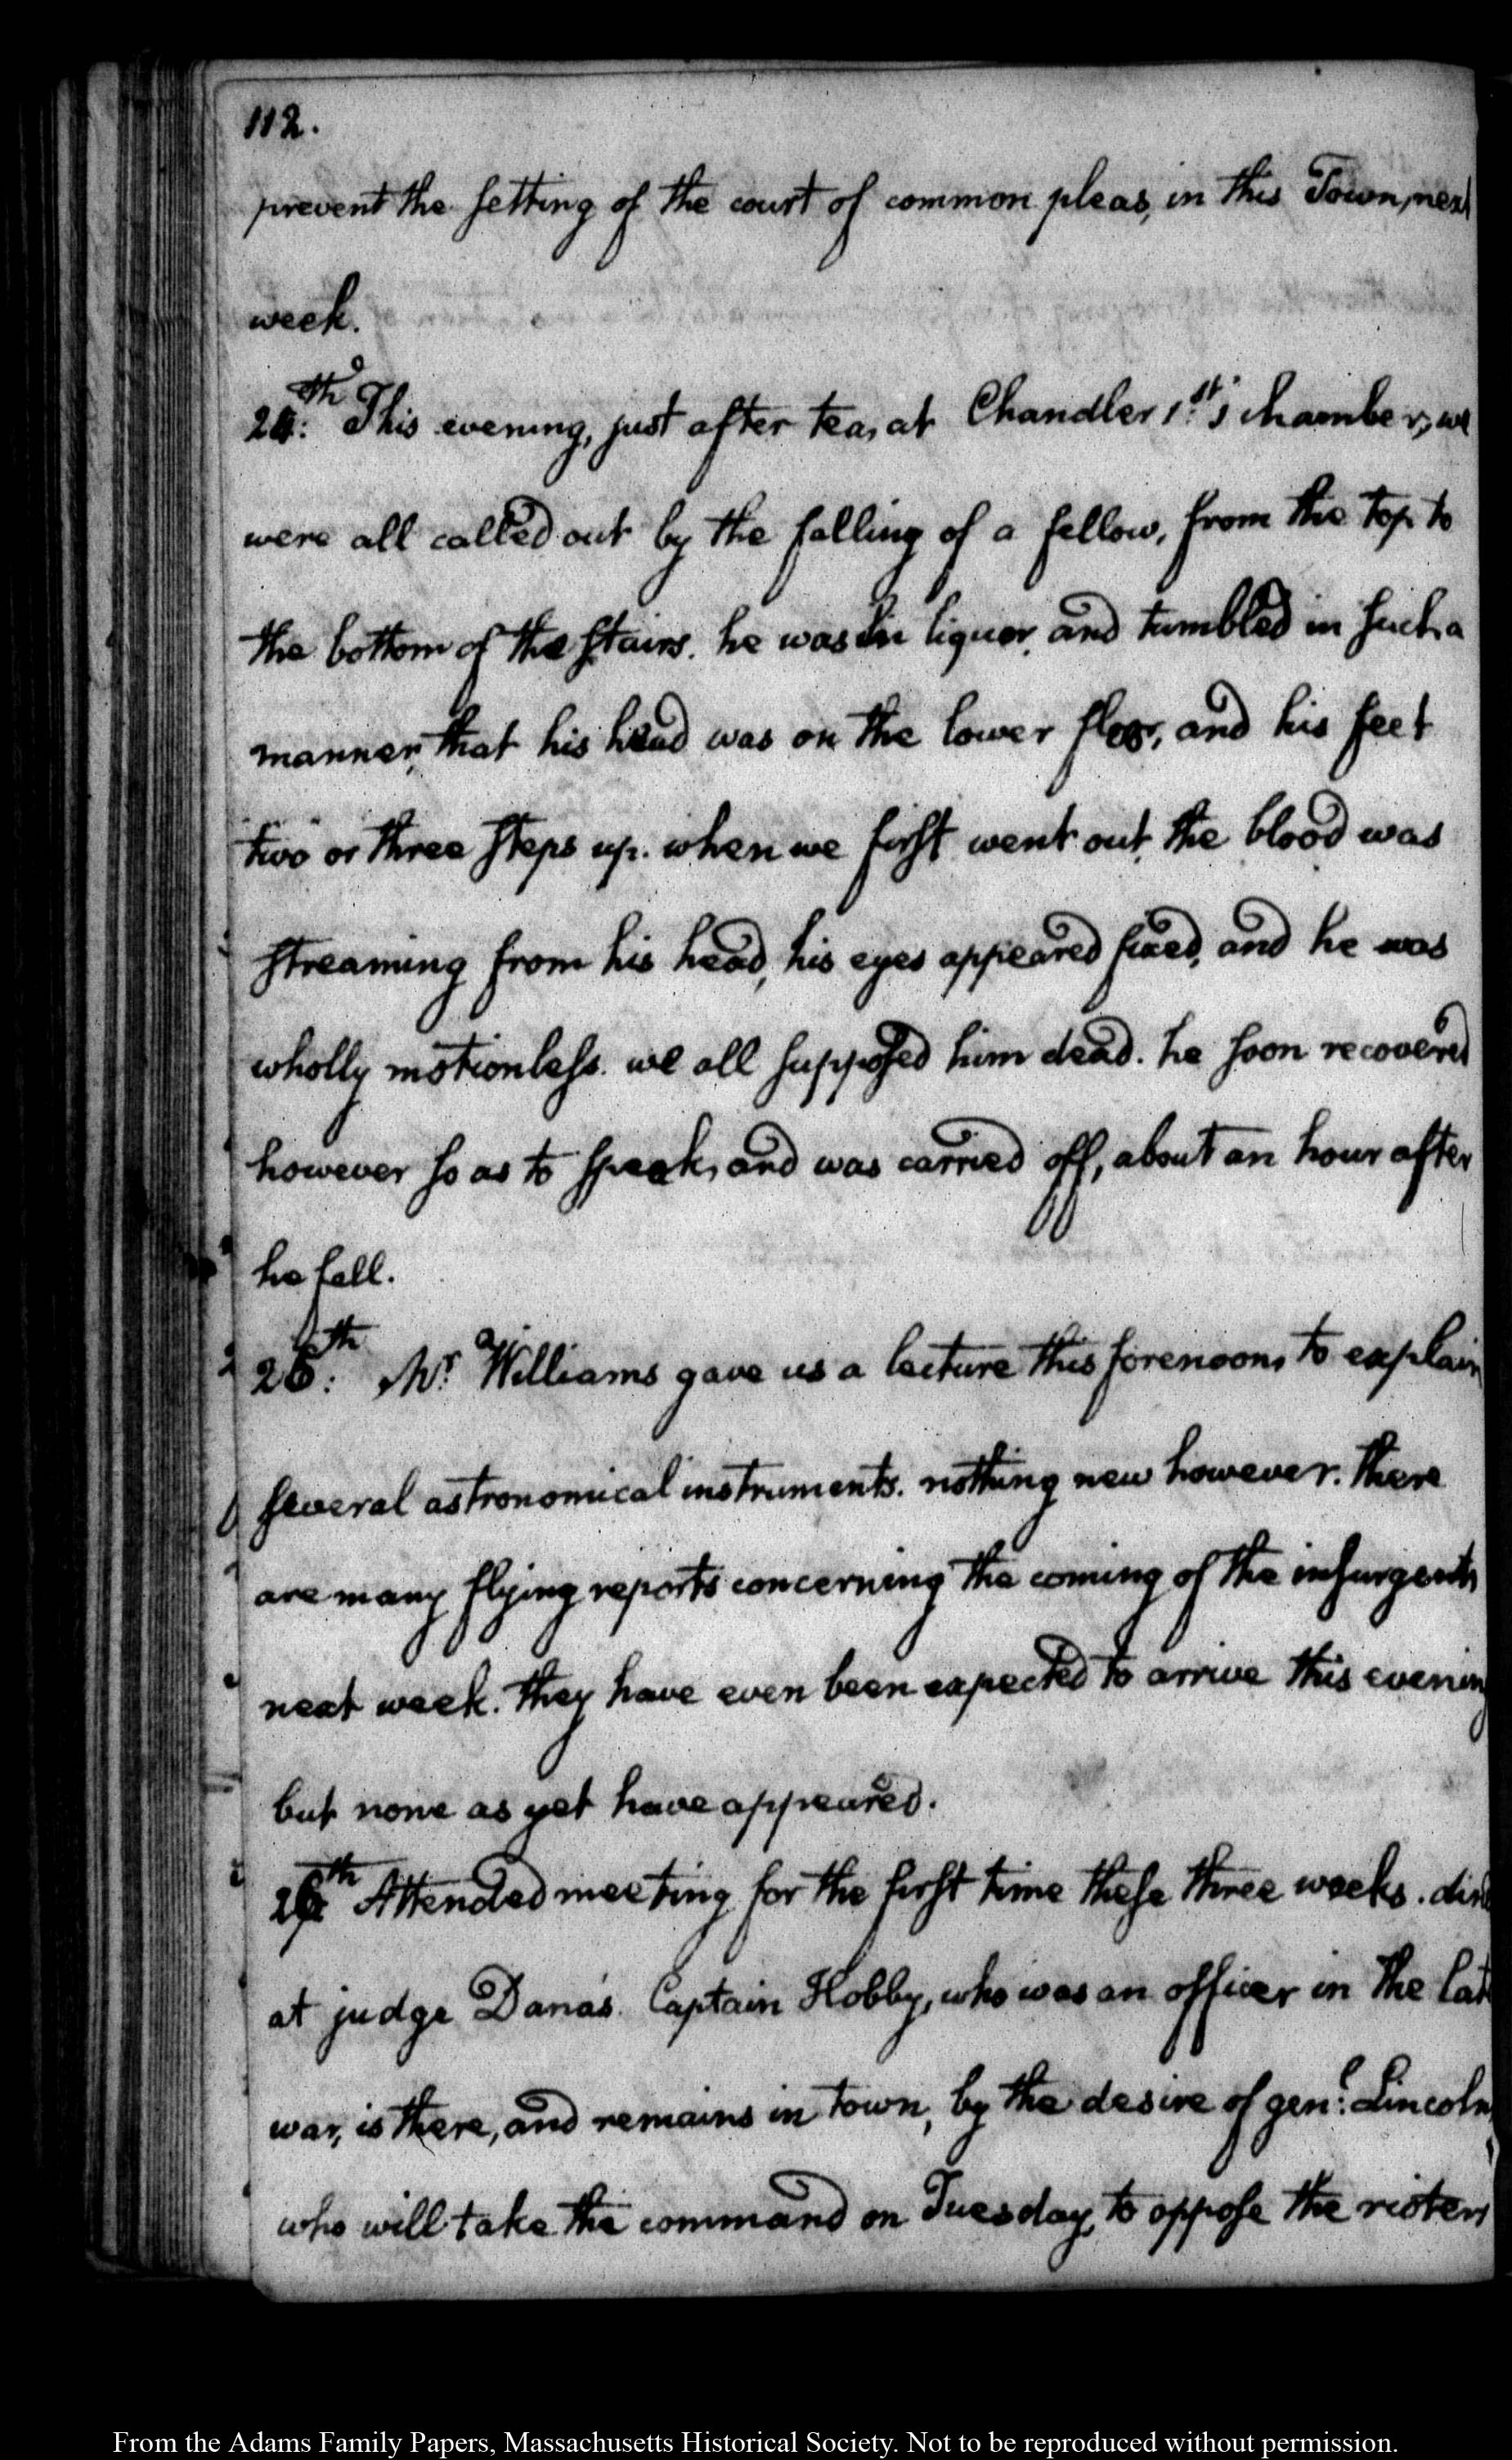 112.
prevent the setting of the court of common pleas, in this Town, next
week.
24th: This evening, just after tea, at Chandler 1st's chamber, we
were all called out by the falling of a fellow, from the top to
the bottom of the stairs. he was in liquor, and tumbled in such a
manner, that his head was on the lower floor, and his feet
two or three steps up. when we first went out, the blood was
streaming from his head, his eyes appeared fixed, and he was
wholly motionless. we all supposed him dead. he soon recovered
however so as to speak, and was carried off, about an hour after
he fell.
25th: Mr. Williams gave us a lecture this forenoon, to explain
several astronomical instruments. nothing new however. There
are many flying reports concerning the coming of the insurgents
next week. They have even been expected to arrive this evening
but none as yet have appeared.
26th Attended meeting for the first time these three weeks. din'd
at judge Dana's. Captain Hobby, who was an officer in the late
war, is there, and remains in town, by the desire of genl: Lincoln,
who will take the command on Tuesday, to oppose the rioters
From the Adams Family Papers, Massachusetts Historical Society. Not to be reproduced without permission.